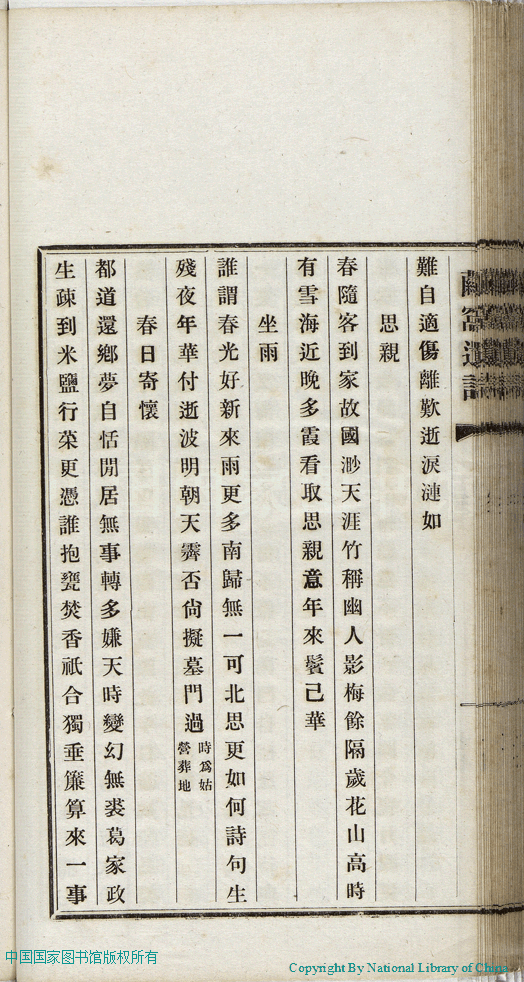 難自適傷離歎逝淚漣如
思親
春隨客到家故國渺天涯竹稱幽人影梅餘隔歲花山高時
有雪海近晚多霞看取思親意年來鬢已華
坐雨
誰謂春光好新來雨更多南歸無一可北思更如何詩句生
殘夜年華付逝波明朝天霽否尙擬墓門過時爲姑
營葬地
春日寄懷
都道還鄉夢自恬閒居無事轉多嫌天時變幻無裘葛家政
生疎到米鹽行菜更憑誰抱甕焚香祇合獨垂簾算來一事
中国国家图书馆版权所有
Copyright By National Library of China